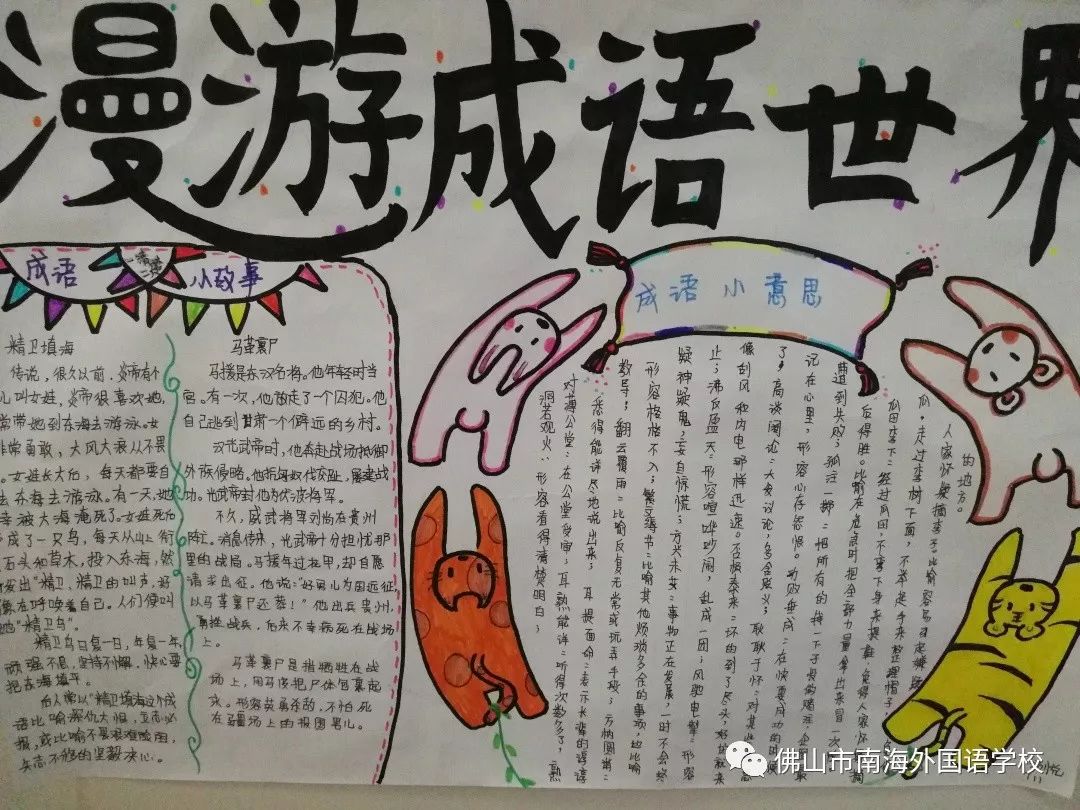 漫游成语世界
成语
小故事
精卫填海
传说，很久以前，炎帝有个
儿叫女娃，炎帝很喜欢她，
常带她到东海去游泳。女
非常勇敢，大风大浪从不畏
。女娃长大后，每天都要自
去东海去游泳。有一天，她
幸被大海淹死了。女娃死后
成了一只鸟，每天从山上衔
石头和草木，投入东海，然
发出"精卫、精卫的叫声，好
像在呼唤着自己。人们便叫
她"精卫鸟"。
精卫鸟日复一日，年复一年，
顽强不息，坚持不懈，决心要
把东海填平。
后人常以"精卫填海这个成
语比喻深仇大恨，立志必
报，或比喻不畏艰难险阻，
矢志不移的坚毅决心。
马革裹尸
马援是东汉名将。他年轻时当
官。有一次，他放走了一个囚犯。他
自己逃到甘肃一个僻远的乡村。
汉光武帝时，他奔赴战场抵御
外族侵略。
功。光武帝封他为伏波将军。
不久，威武将军刘尚在贵州
阵亡。消息传来，光武帝十分担忧那
里的战局。马援年过花甲，却自愿
请求出征。他说："好男儿为国远征，
以马革裹尸还葬！"他出兵贵州，
勇挫战兵，后来不幸病死在战场
上。
马革裹尸是指牺牲在战
场上，用马革把尸体包裹起
来。形容英勇不敌，不怕死
在疆场上的报国男儿。
成语小意思
的地方。
人家怀疑摘李子。比喻容易引起嫌疑
瓜。走过李树下面，不举起手来整理帽子
瓜田李下：经过瓜田，不弯下身来提鞋，免得人家怀
后得胜。比喻在危急时把全部力量拿出来冒一次
遭到失败；孤注一掷：把所有的钱一下子投做赌注，企
记在心里，形容心存怨恨。功败垂成：在快要成功的时候
了，高谈阔论：大发议论，多含贬义；耿耿于怀：对某些
像刮风和闪电那样迅速。否极泰来：坏的到了尽头，好的就来
止；沸反盈天：形容喧哗吵闹，乱成一团；风驰电掣：形容
疑神疑鬼，妄自惊慌；方兴未艾：事物正在发展，一时不会终
形容格格不入；繁文缛节：比喻其他烦琐多余的事项，也比喻
教导；翻云覆雨：比喻反复无常或玩弄手段；方枘圆凿：
悉得能详尽地说出来；耳提面命：表示长辈的谆谆
对薄公堂：在公堂受审；耳熟能详：听得次数多了，熟
洞若观火：形容看得清楚明白；
佛山市南海外国语学校